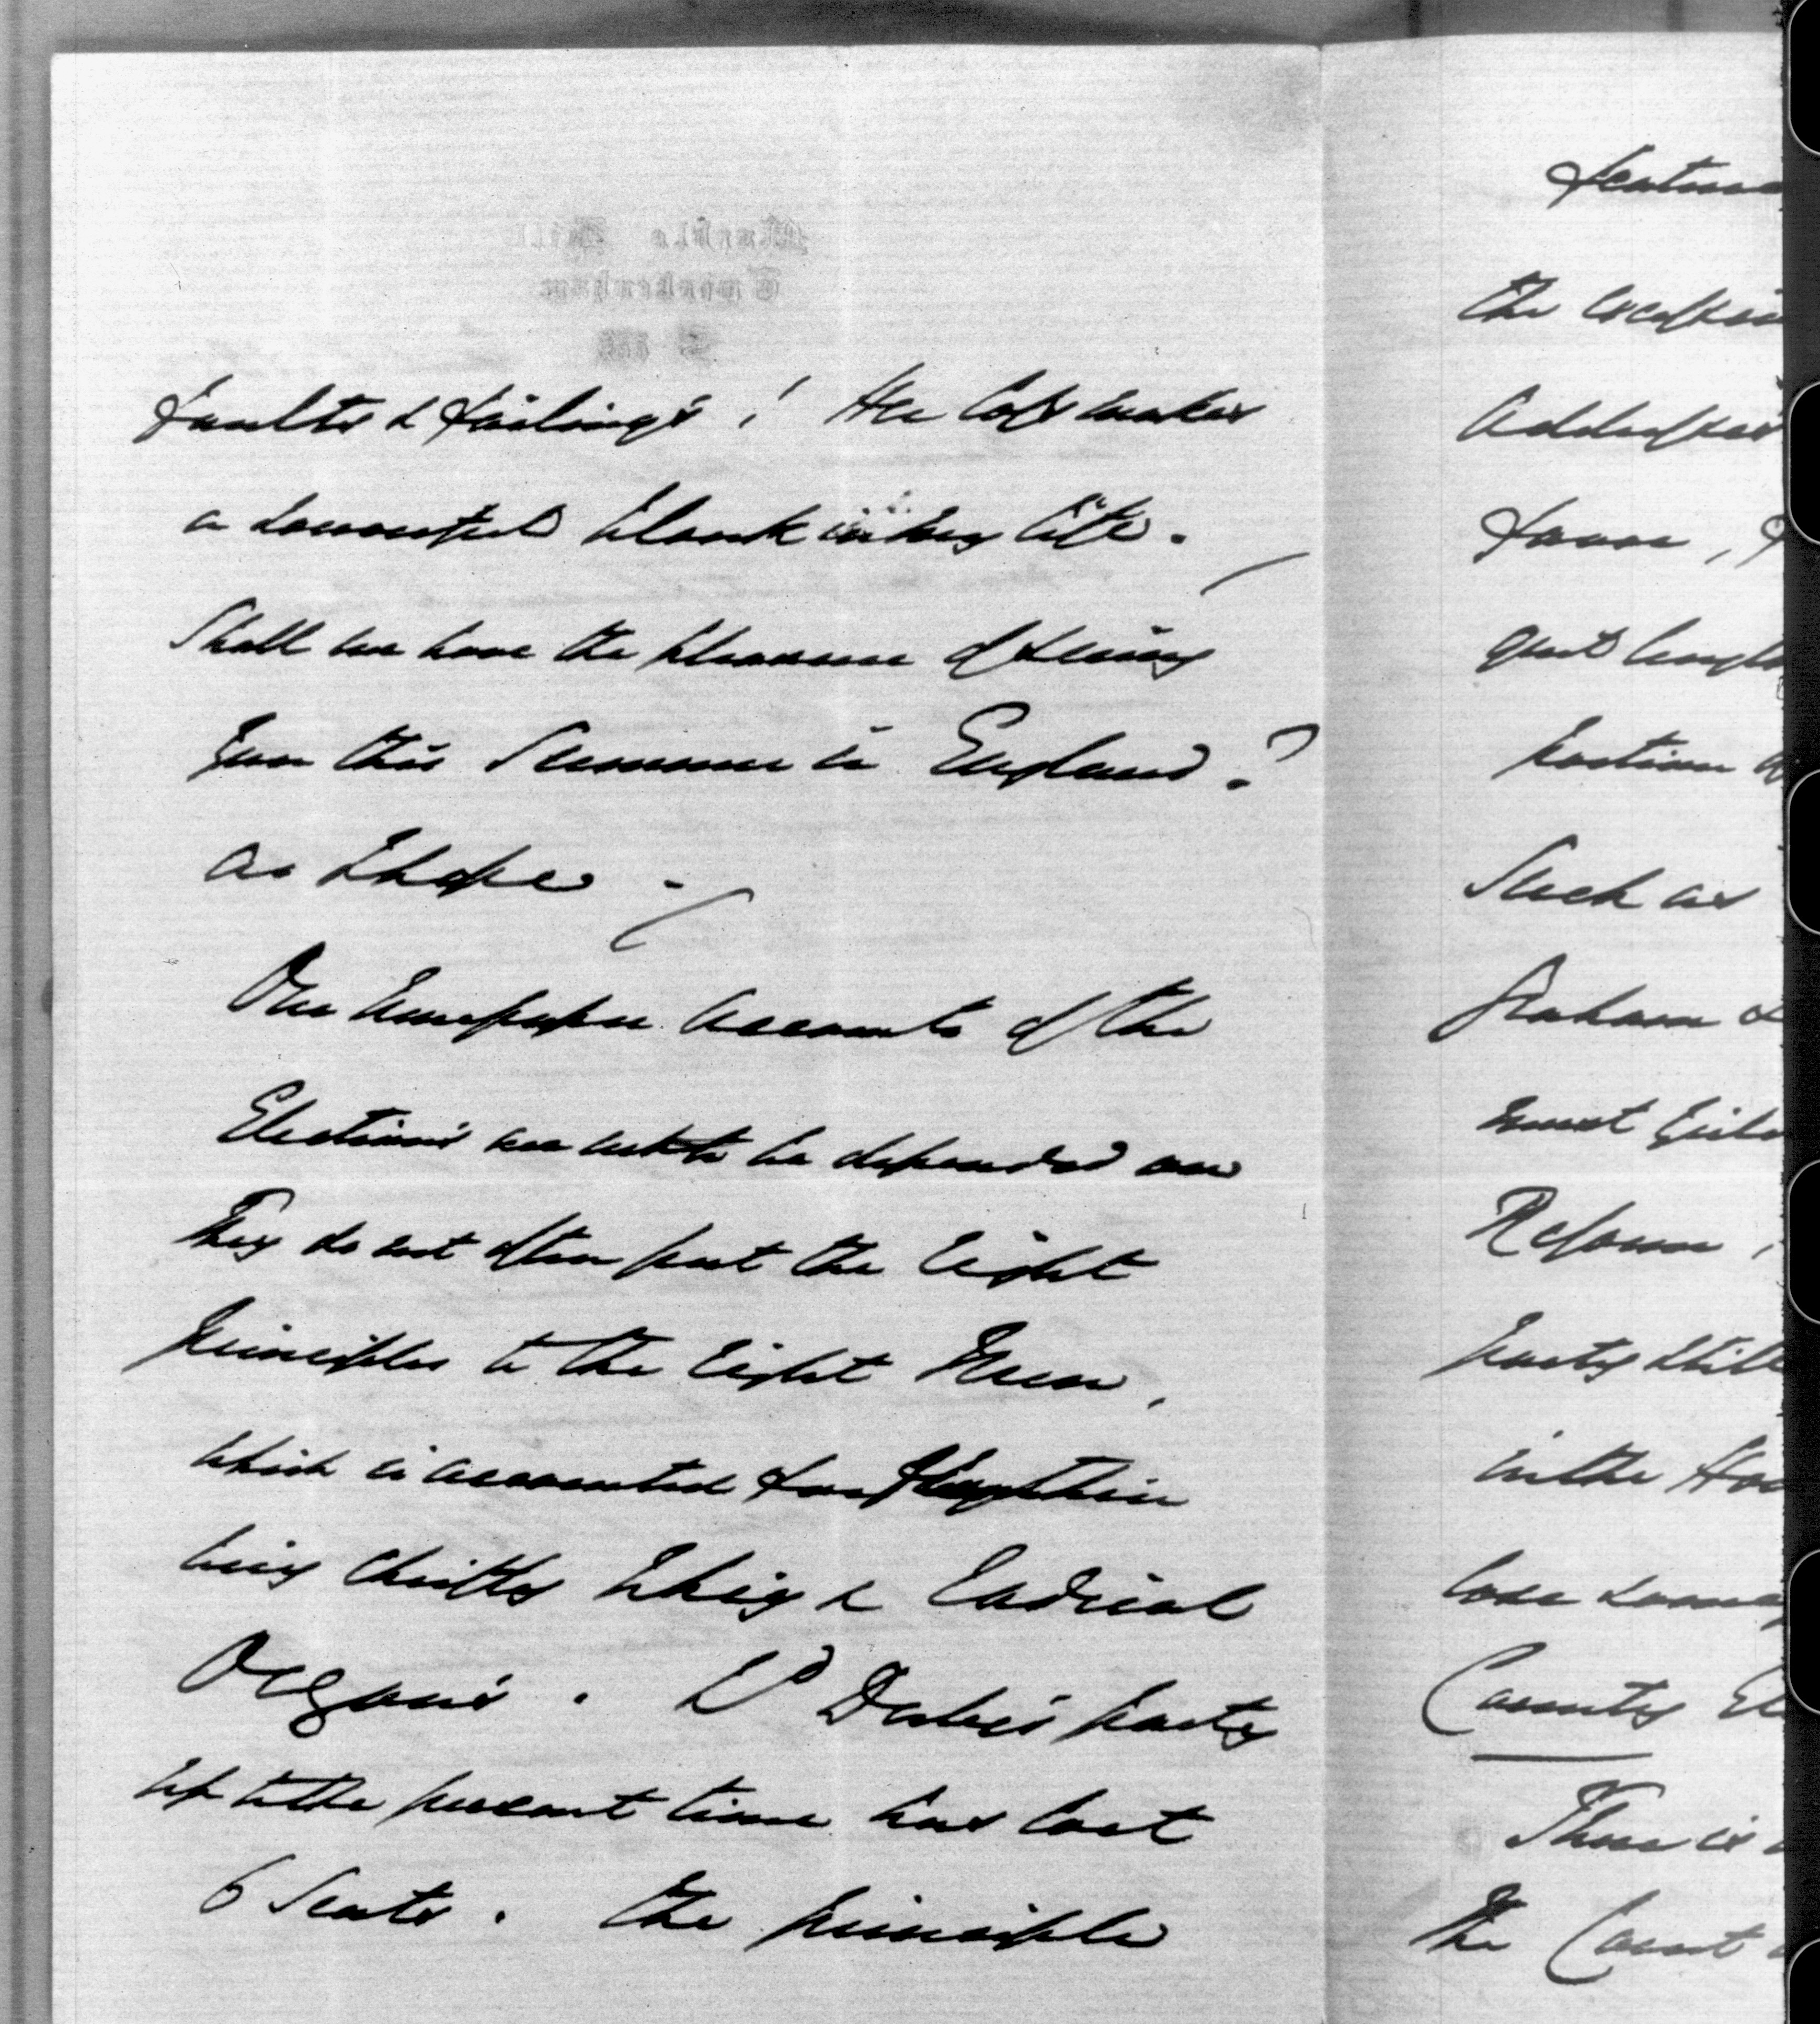 faults & failings! Her loss makes
a dreadful blank in my life.
Shall we have the pleasure of seeing
you this Summer in England?
as I hope -
Our Newspaper accounts of the
Elections are not to be depended on
They do not often put the right
principles to the right Men,
which is accounted for by their
being chiefly Whig & Radical
Organs. Ld Derby's party
up to the present time has lost
6 Seats. The principle
feature
the
Addresses
favor,
great length
portion
Such as
Graham &
must
Reform,
party still
in the Hou
lose some
County El
There is
the Count